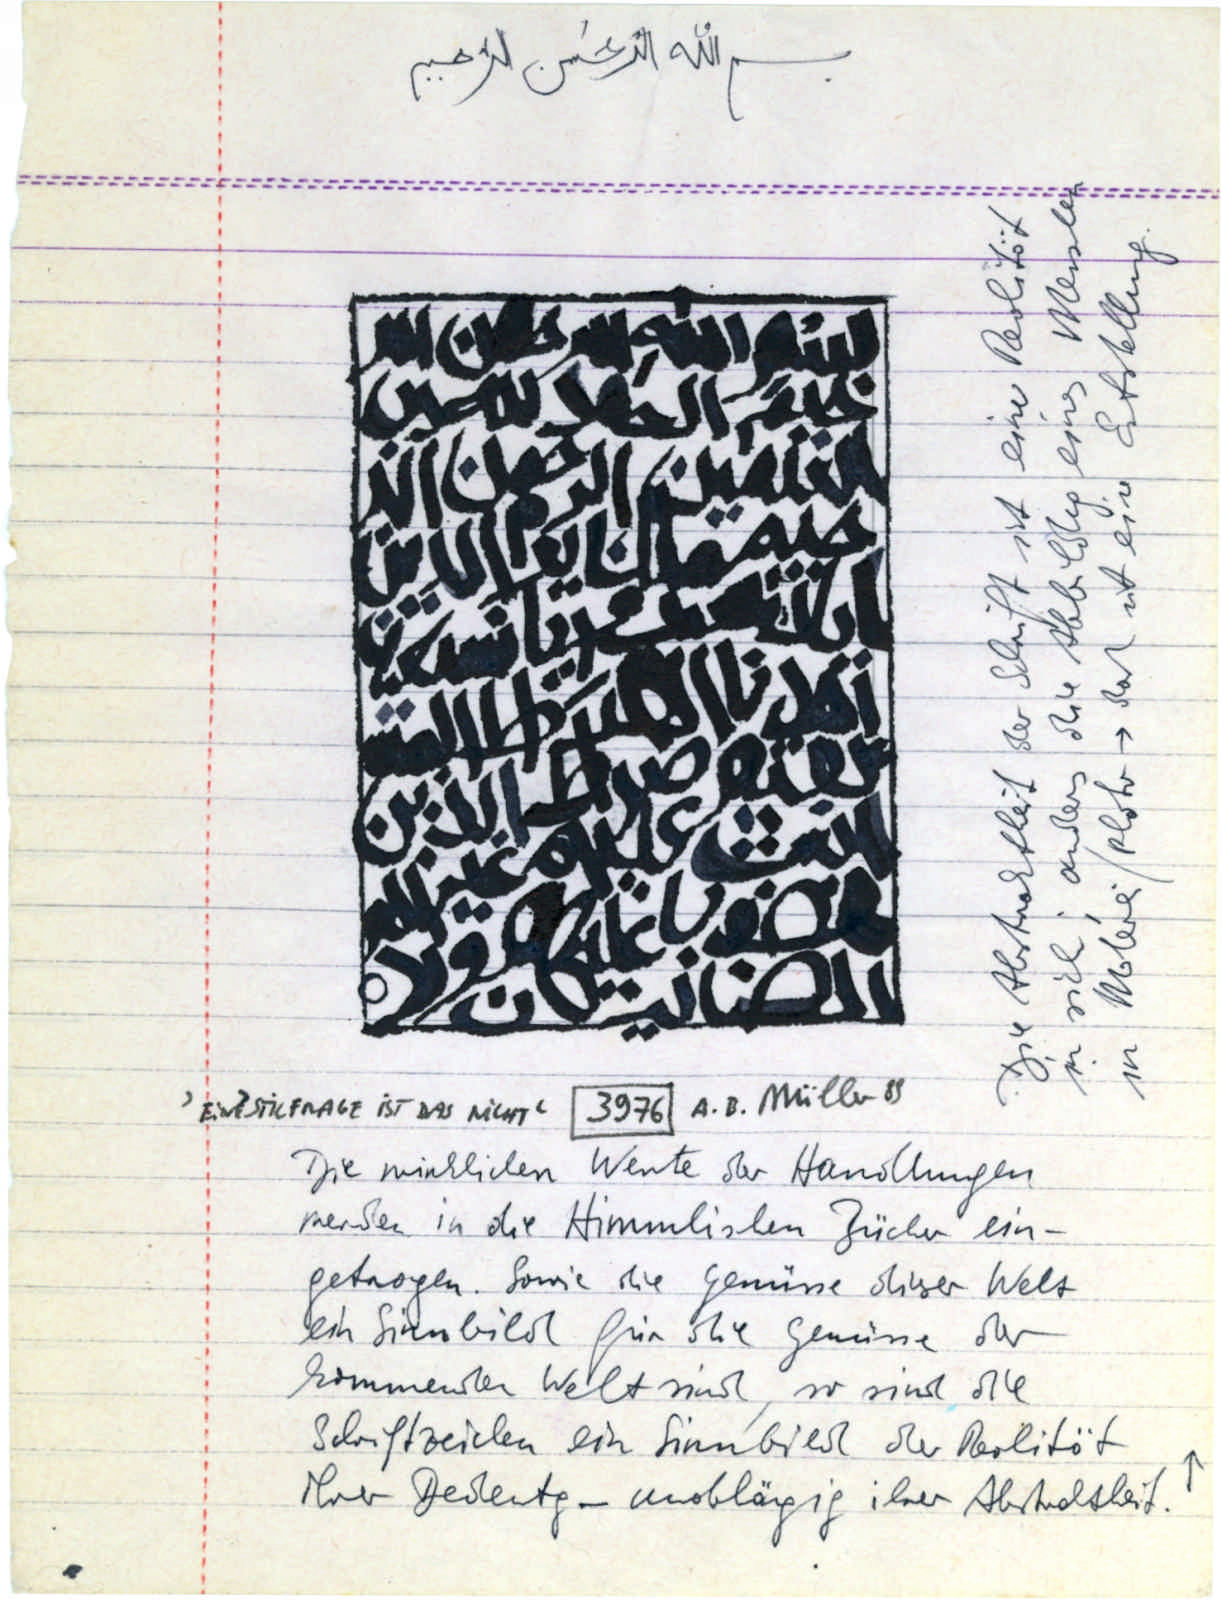 بسم الله الرحمن الرحيم
بسم الله الرحمن الر
حيم الحمد لله رب
العلمين الرحمن الر
حيم ملك يوم الدين
اياك نعبد واياك نستعين
اهدنا الصراط المست
قيم صراط الذين
انعمت عليهم غير الم
غضوب عليهم ولا
الضالين
›EINE STILFRAGE IST DAS NICHT‹ 3976 A. B. Müller 89
Die wirklichen Werte der Handlungen
werden in die Himmlischen Bücher ein-
getragen. Sowie die Genüsse dieser Welt
ein Sinnbild für die Genüsse der
kommenden Welt sind, so sind die
Schriftzeichen ein Sinnbild der Realität
ihrer Bedeutg – unabhängig ihrer Abstraktheit. ↑
Die Abstraktheit der Schrift ist eine Realität
in sich, anders die Abbildg eines Menschen
in Malerei/Photo → das ist eine Entstellung.